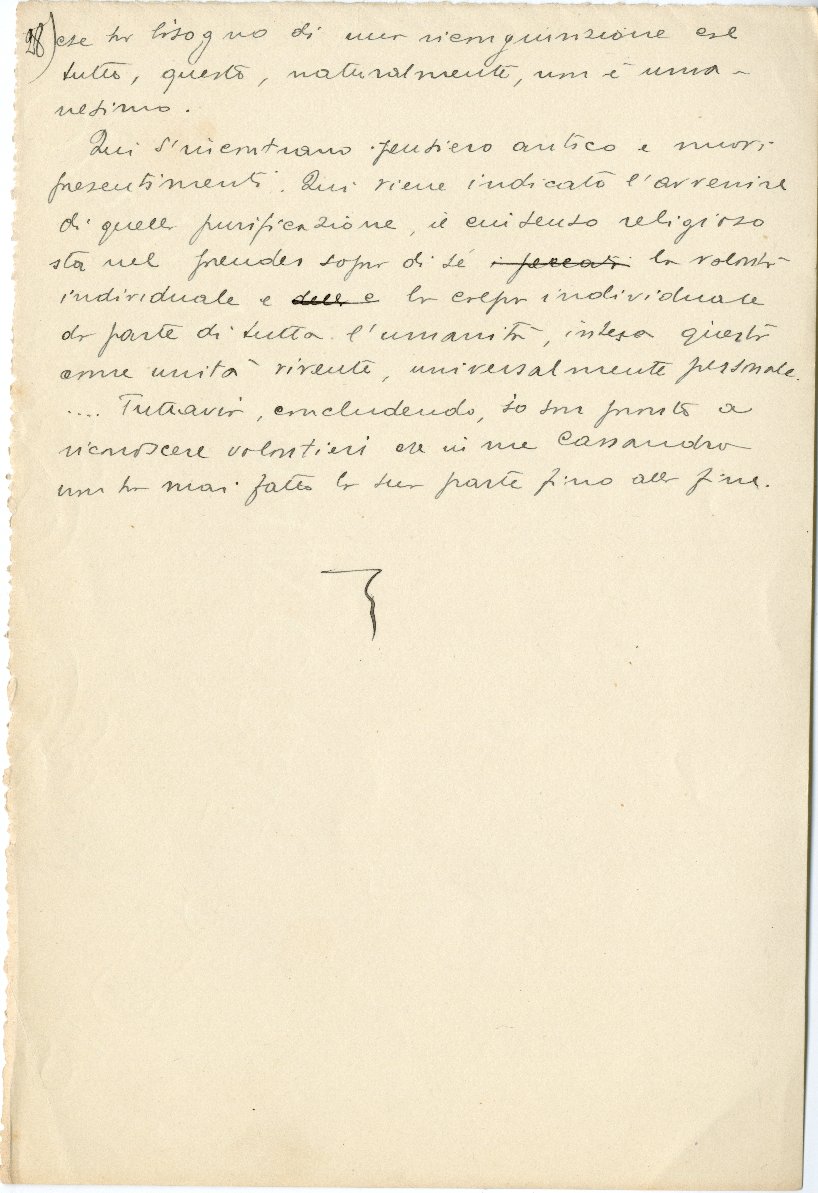 28)
che ha bisogno di una ricongiunzione col
tutto, questo, naturalmente, non è uma-
nesimo.
Qui s'incontrano pensiero antico e nuovi
presentimenti. Qui viene indicato l'avvenire
di quella purificazione, il cui senso religioso
sta nel prender sopra di sé i peccati la volontà
individuale e della e la colpa individuale
da parte di tutta l'umanità, intesa questa
come unità vivente, universalmente personale.
.... Tuttavia, concludendo, io son pronto a
riconoscere volontieri che in me Cassandra
non ha mai fatto la sua parte fino alla fine.